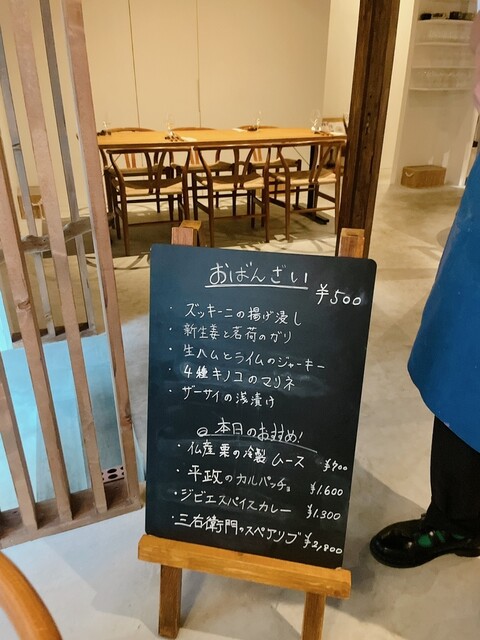 おばんざい
¥500
・ズッキーニの揚げ浸し
・新生姜と茗荷のガリ
・生ハムとライムのジャーキー
・4種キノコのマリネ
・ザーサイの浅漬け
本日のおすすめ!
・仏産栗の冷製ムース ¥900
・平政のカルパッチョ ¥1.600
・ジビエスパイスカレー ¥1.300
・三右衛門のスペアリブ ¥2,800